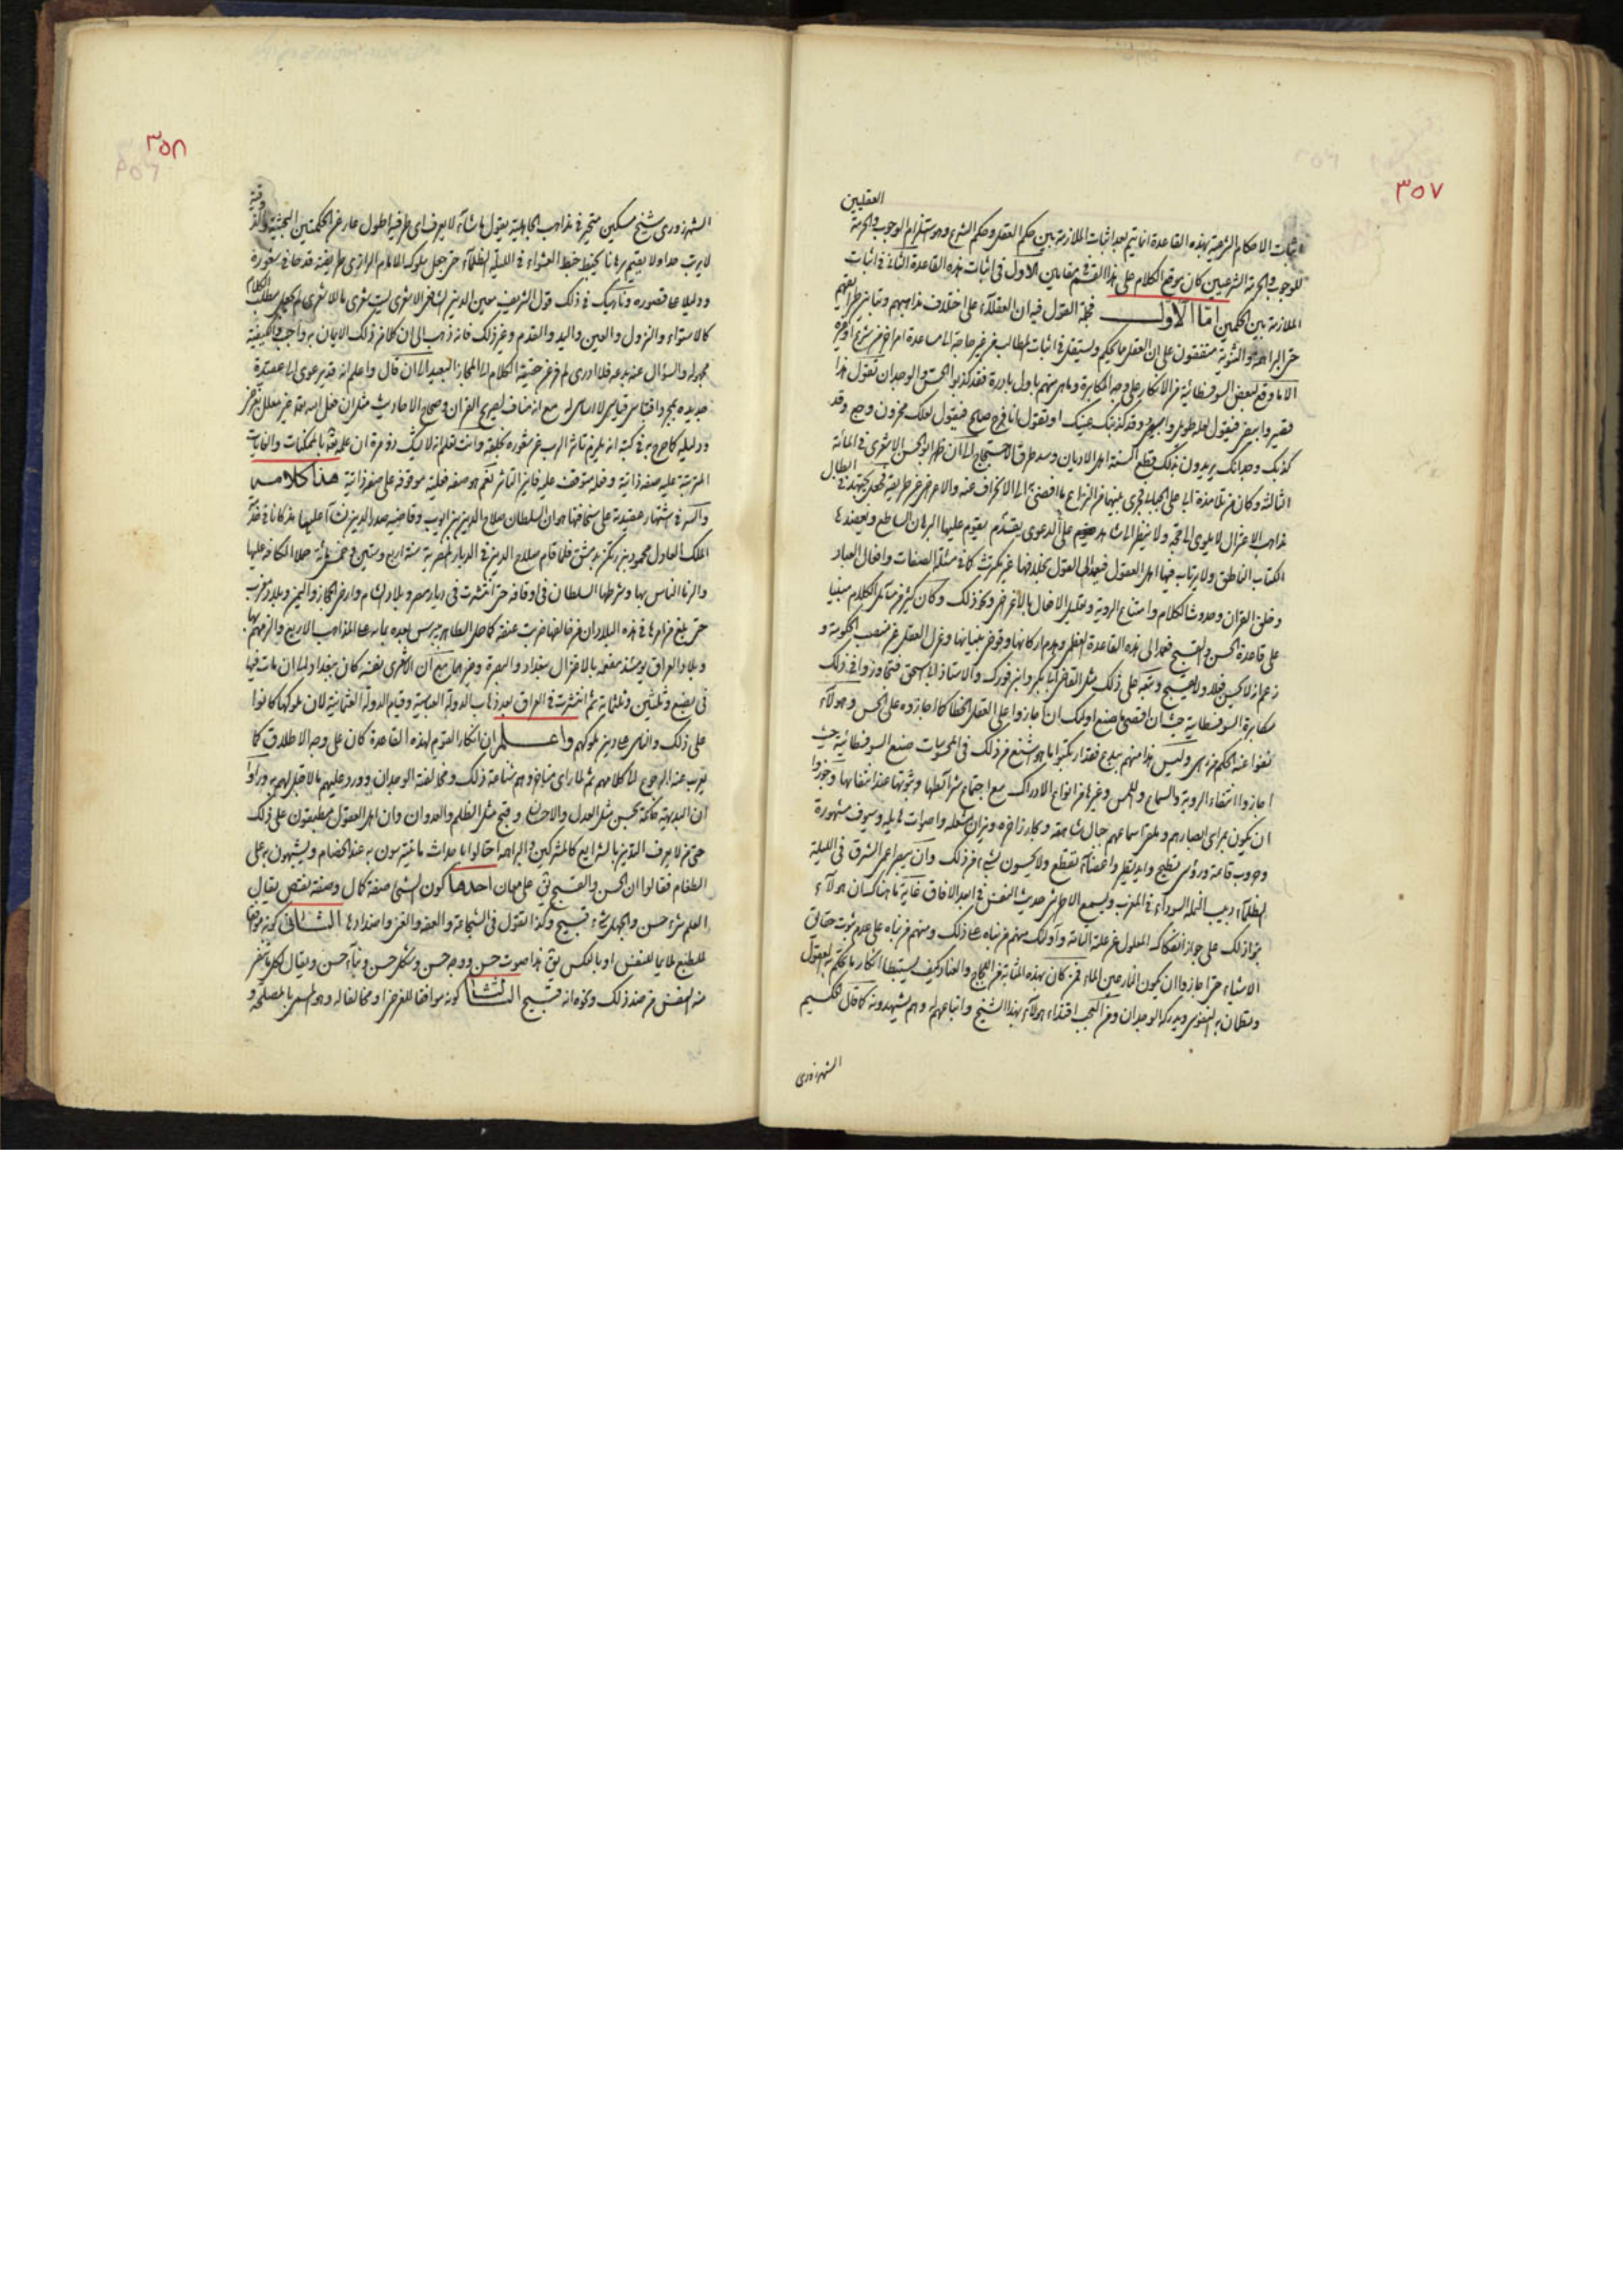 ٣٥٧
العقليين
اثبات الاحكام الشرعية بهذه القاعدة انما يتم بعد اثبات الملازمة بين حكم العقل وحكم الشرع وهو استلزام الوجوب والحرمة
للوجوب والحرمة الشرعيين كان موقع الكلام على هذا القسم مقامين الاول فى اثبات هذه القاعدة الثانى فى اثبات
الملازمة بين الحكمين امّا الاول فجملة القول فيه ان العقلاء على اختلاف مذاهبهم وتباين طرايقهم
حتى البراهمة والثنوية متفقون على ان العقل حاكم ويستقل فى اثبات المطالب من غير حاجة الى مساعدة امر اخر من شرع او غيره
الا ما وقع لبعض السوفسطائية من الانكار على وجه المكابرة فقد كذبوا الحسّ والوجدان تقول هذا
قصير وابيض فيقول لعله طويل واسود وقد كذبتك عينك او تقول انا فرح صالح فيقول لعلك محزون وجع وقد
كذبك وجدانك يريدون بذلك قطع السنة اهل الاديان وسد طرق الاحتجاج الى ان ظهر ابو الحسن الاشعرى فى المائة
الثالثة وكان من تلامذة ابى على الجبائى فجرى بينهما من النزاع ما افضى الى الانحراف عنه والاعراض عن طريقه فجعل يجتهد فى ابطال
مذاهب الاعتزال لا يلوى الى حجة ولا ينظر الى شاهد على الدعوى يقدم يقوم عليها البرهان الساطع ويعضدها
الكتاب الناطق ولا يرتاب فيها اهل العقول فيعدل الى القول بخلافها غير مكترث كما فى مسئلة الصفات وافعال العباد
وخلق القران وحدوث الكلام وامتناع الروية وتعليل الافعال بالاغراض ونحو ذلك وكان كثير من مسائل الكلام مبنيا
على قاعدة الحسن والقبح فعمد الى هذه القاعدة العظمى وهدم اركانها وقوض بنيانها وعزل العقل عن منصب الحكومة و
زعم انه لا يحسن فعلا ولا يقبح وتبعه على ذلك مثل القاضى ابا بكر وابن فورك والاستاذ ابا اسحق فتجاوزوا فى ذلك
مكابرة السوفسطايية حيث ان اقصى ما صنع اولئك ان اجازوا على العقل الخطا كما اجازوه على الحس وهولاء
نفوا عنه الحكم من راس وليس هذا منهم ببدع فقد ارتكبوا ما هو اشنع من ذلك فى المحسوسات صنع السوفسطائية حيث
اجازوا انتفاء الروية والسماع واللمس وغيرها من انواع الادراك مع اجتماع شرائطها وثبوتها عند انتفائها وجوزوا
ان يكون بمراى ابصارهم وملقى اسماعهم جبال شاهقة وبحار زاخرة ونيران مشعلة واصوات هايلة وسيوف مشهورة
وحروب قائمة ورؤس تطيح وايد تقطع واعضاء تقطع ولا يحسون بشىء من ذلك وان يبصر اعمى الشرق فى الليلة
الظلماء دبيب النملة السوداء فى المغرب ويسمع الاصم حديث النفس فى ابعد الافاق غاية ما هناك ان هولاء
بنوا ذلك على جواز انفكاك المعلول عن علته التامة واولئك منهم من بناه على ذلك ومنهم من بناه على عدم ثبوت حقايق
الاشياء حتى اجازوا ان يكون النار عين الماء فمن كان بهذه المثابة من اللجاج والعناد كيف يستبطا انكار ما تحكم به العقول
وتطمان به النفوس ويدركه الوجدان ومن العجب اقتداء هولاء بهذا الشيخ واتباعهم له وهم يشهدونه كما قال الحكيم
الشهرزورى
٣٥٨
الشهرزورى شيخ مسكين متحير فى مذاهب الجاهلية يقول ما شاء لا يعرف اى طرفيه اطول عار عن الحكمتين البحثية والذوقية
لا يرتب حدا ولا يقيم برهانا يخبط خبط العشواء فى الليلة الظلماء حتى جعل سلوك الامام الرازى طريقته قدحا فى شعوره
ودليلا على قصوره وناهيك فى ذلك قول الشريف معين الدين الشافعى الاشعرى ليت شعرى ما للاشعرى لم يجعل مطلب الكلام
كالاستواء والنزول والعين واليد والقدم وغير ذلك فانه ذهب الى ان كلا من ذلك الايمان به واجب والكيفية
مجهولة والسؤال عنه بدعة فلا ادرى لم فر عن حقيقة الكلام الى المجاز البعيد الى ان قال واعلم انه قد يرعوى الى عقيدة
جديدة بمجرد اقتباس قياس لا اساس له مع انه مناف لصريح القران وصحاح الاحاديث مثل ان فعل الله تعالى غير معلل بغرض
ودليله كما صرح به فى كتبه انه يلزم تاثر الرب عن شعوره بخلقه وانت تعلم انه لا يشك ذو مرة ان علمه تعالى بالممكنات والغايات
المترتبة عليه صفة ذاتية وفعله متوقف عليه فاين التاثر نعم هو صفة فعلية موقوفة على صفة ذاتية هذا كلامه
والسر فى اشتهار عقيدته على سخافتها هو ان السلطان صلاح الدين بن ايوب وقاضيه صدر الدين نشأ عليها مذ كانا فى خدمة
الملك العادل محمود بن زنكى بدمشق فلما قام صلاح الدين فى الديار المصرية سنة اربع وستين وخمسمائة حملا الكافة عليها
والزما الناس بها وشرطها السلطان فى اوقافه حتى انتشرت فى ديار مصر وبلاد الشام وارض الحجاز واليمن وبلاد المغرب
حتى بلغ من امرها فى هذه البلاد ان من خالفها ضربت عنقه كما حمل الظاهر بيبرس بعده الناس على المذاهب الاربع والزمهم بها
وبلاد العراق يومئذ مفعمة بالاعتزال ببغداد والبصرة وغيرهما مع ان الاشعرى نفسه كان ببغداد الى ان مات فيها
فى بضع وثلثين وثلثمائة ثم انتشرت فى العراق بعد ذهاب الدولة العباسية وقيام الدولة العثمانية لان ملوكها كانوا
على ذلك والناس على دين ملوكهم واعلم ان انكار القوم لهذه القاعدة كان على وجه الاطلاق كما
يعرب عنه الرجوع الى كلامهم ثم لما راى متاخروهم شناعة ذلك ومخالفته الوجدان وورد عليهم ما لا قبل لهم به وراوا
ان البديهة حاكمة بحسن مثل العدل والاحسان وقبح مثل الظلم والعدوان وان اهل العقول مطبقون على ذلك
حتى من لا يعرف التدين بالشرايع كالمشركين والبراهمة احتالوا باحداث ما يتترسون به عند الخصام ويشبهون به على
الطغام فقالوا ان الحسن والقبح يأتى على معان احدها كون الشئ صفة كمال وصفة نقص يقال
العلم شىء حسن والجهل شىء قبيح وكذا القول فى الشجاعة والعفة والغنى واضدادها الثانى كونه موافقا
للطبع ملائما للنفس او بالعكس يقال هذا صوت حسن ووجه حسن وشكل حسن وبناء حسن ويقال لكل ما تنفر
منه النفس من ضد ذلك ونحوه انه قبيح الثالث كونه موافقا للغرض او مخالفا له وهو المسمى بالمصلحة و